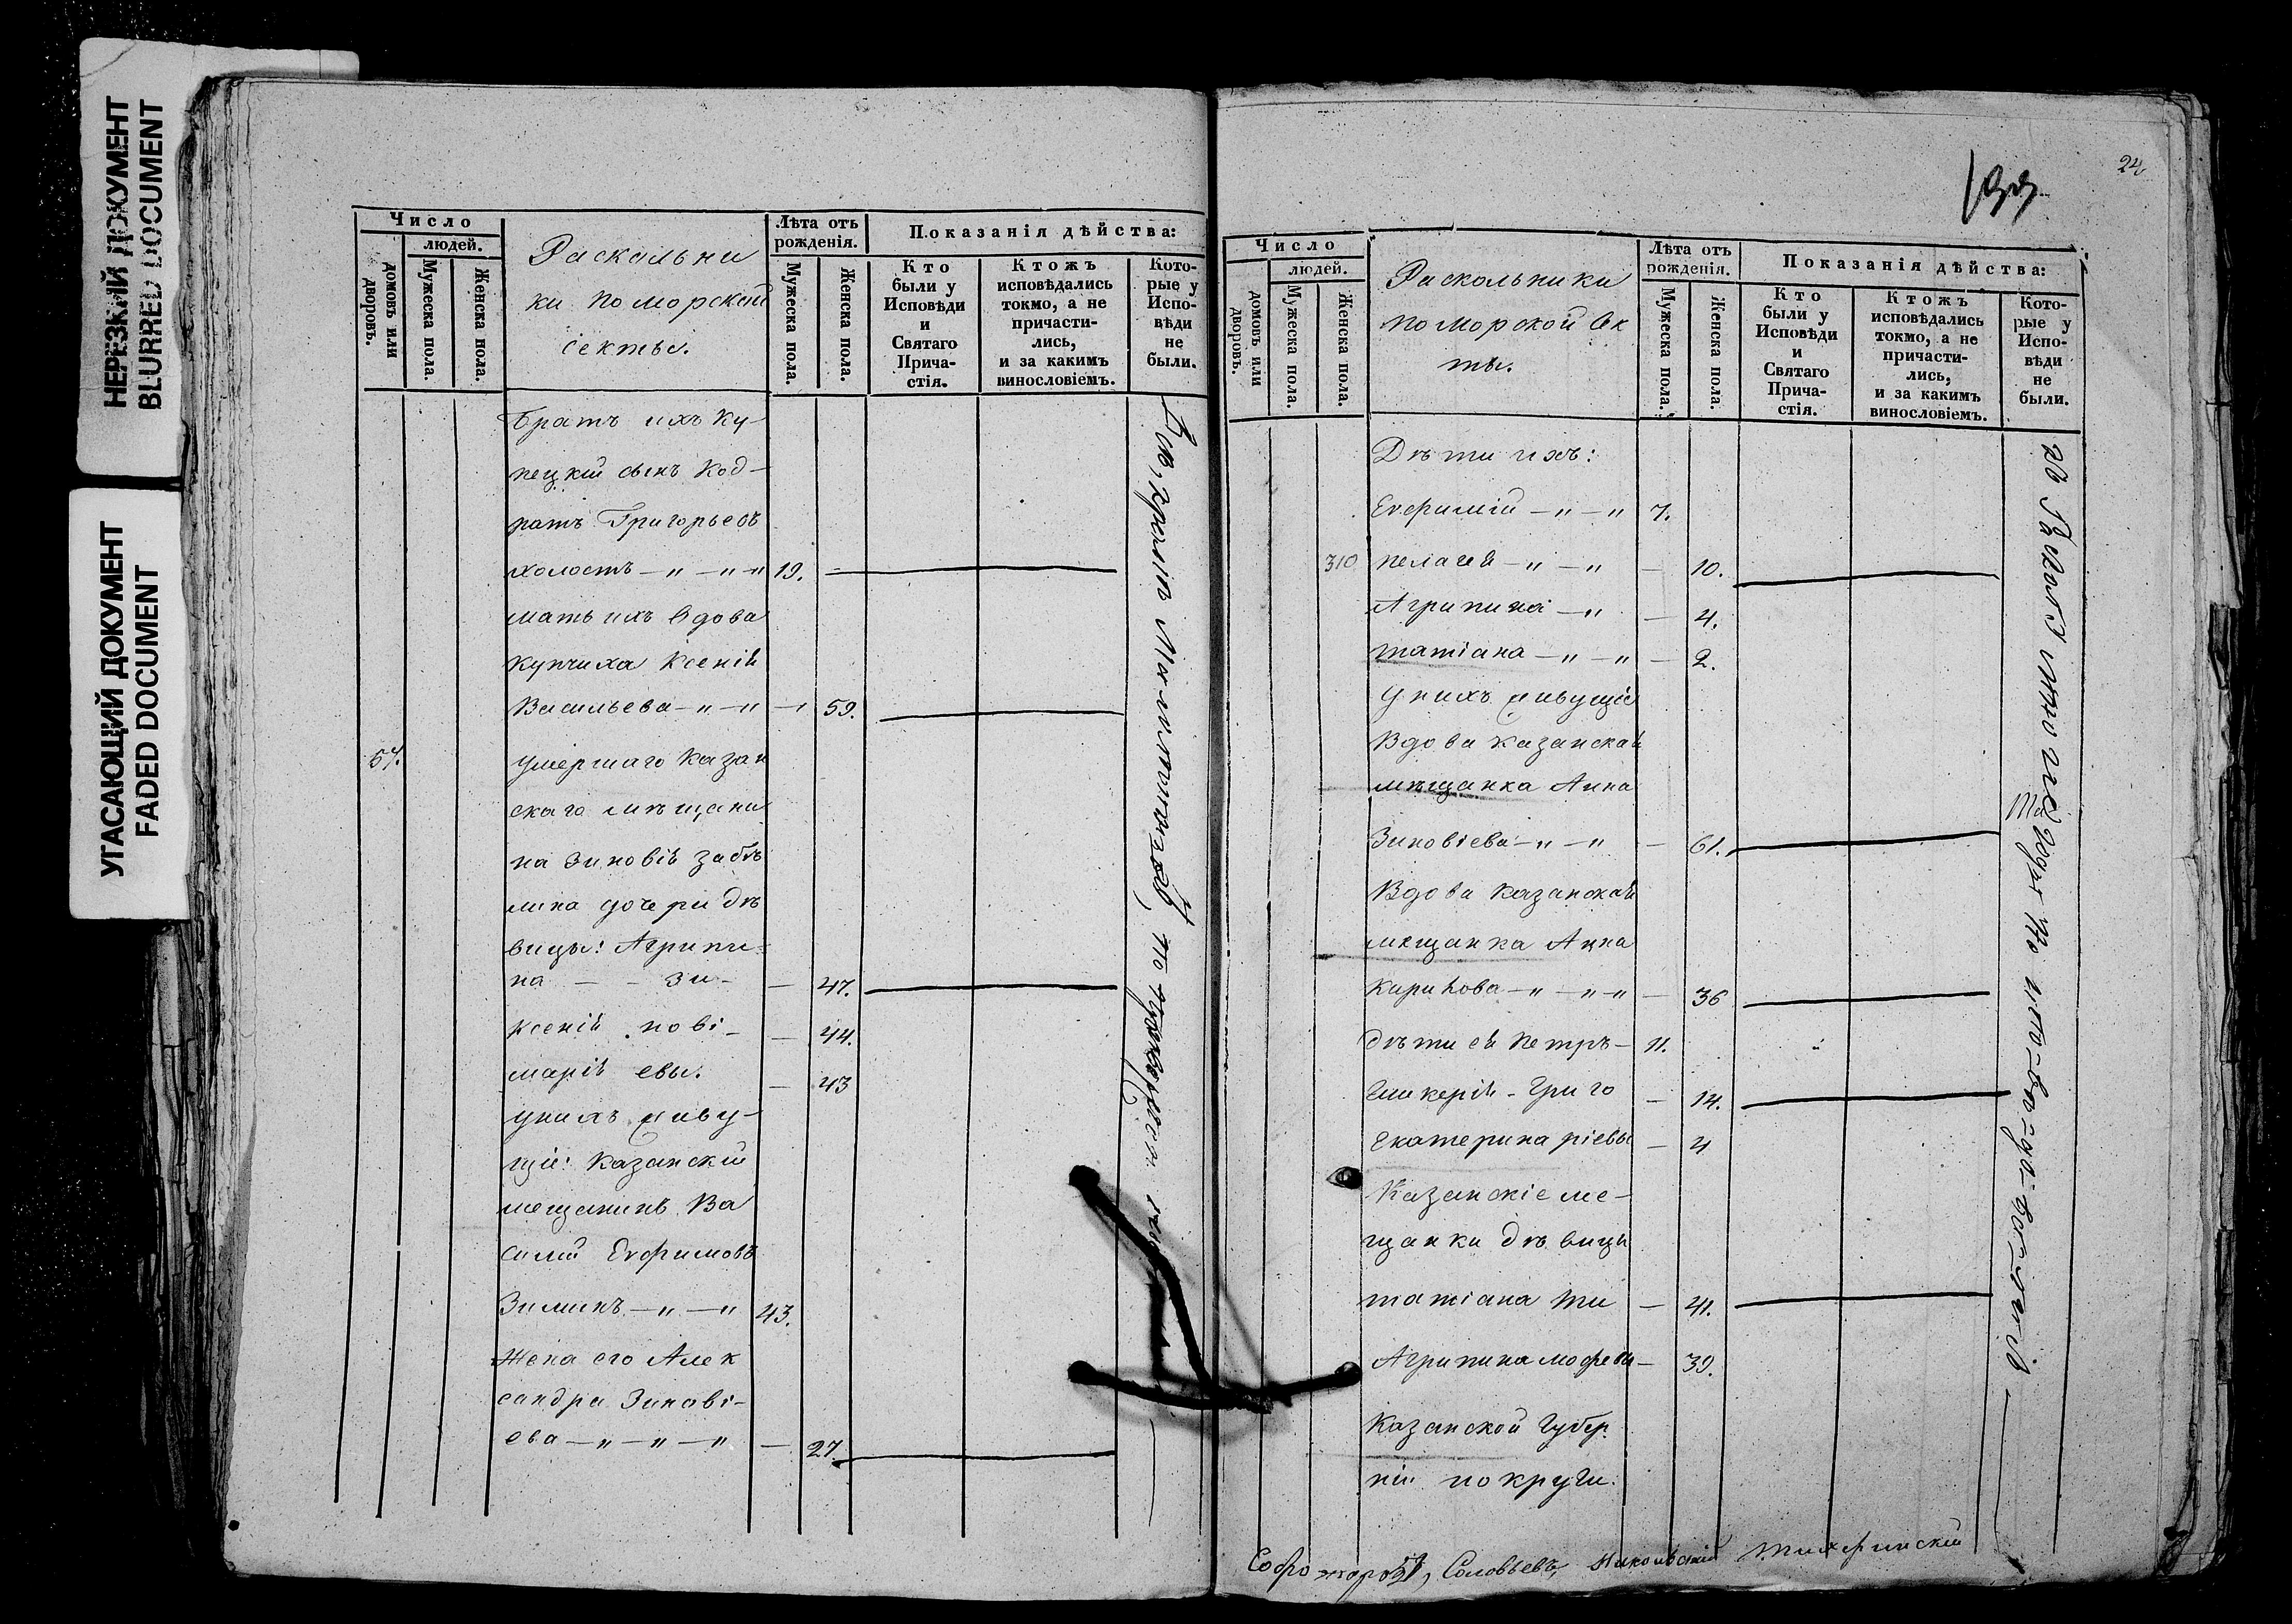 НЕРЕЗКИЙ ДОКУМЕНТ
BLURRED DOCUMENT
УГАСАЮЩИЙ ДОКУМЕНТ
FADED DOCUMENT
Число
людей.
домовъ или дворовъ.
Мужеска пола.
Женска пола.
Раскольни
ки поморской
секты.
Лѣта отъ рожденія.
Мужеска пола.
Женска пола.
Показанія дѣйства:
Кто были у Исповѣди и Святаго Причастія.
Ктожъ исповѣдались токмо, а не причастились, и за какимъ винословіемъ.
Которые у Исповѣди не были.
Братъ ихъ Ку-
пецкій сынъ Код-
ратъ Григорьевъ
холостъ —„ —„ —„ 19.
мать ихъ вдова
купчиха Ксенія
Васильева —„ —„ — 59.
57. умершаго Казан
скаго мѣщани
на Зиновія Забѣ
лина дочери дѣ
вицы: Агрипи-
на — - Зи- — 47.
Ксенія нові- — 44.
марія евы. — 43
у нихъ живу-
щіе: Казанскій
мещанинъ Ва
силій Ефимовъ
Зиминъ —„ —„ 43.
Жена его Алек
сандра Зинові-
ева —„ —„ —„ — 27.
24
133
Число
людей.
домовъ или дворовъ.
Мужеска пола.
Женска пола.
Раскольники
поморской Сек
ты.
Лѣта отъ рожденія.
Мужеска пола.
Женска пола.
Показанія дѣйства:
Кто были у Исповѣди и Святаго Причастія.
Ктожъ исповѣдались токмо, а не причастились, и за какимъ винословіемъ.
Которые у Исповѣди не были.
Дѣти ихъ:
Евфимій —„ —„ 7.
310 пелагея —„ —„ — 10.
Агрипина —„ — 4.
татіана —„ —„ — 2.
У нихъ живущіе
Вдова казанская
мѣщанка Анна
Зиновіева —„ —„ — 61.
Вдова казанская
мещанка Анна
Кирилова —„ —„ —„ — 36
дѣти ея Петръ — 11.
Гликерія - Григо — 14.
Екатерина ріевы — 4
Казанскіе ме-
щанки дѣвицы
татіана Ти — 41.
Агрипина мофевы — 39.
Казанской Губер
ніи
Соловьевъ, Никольскій